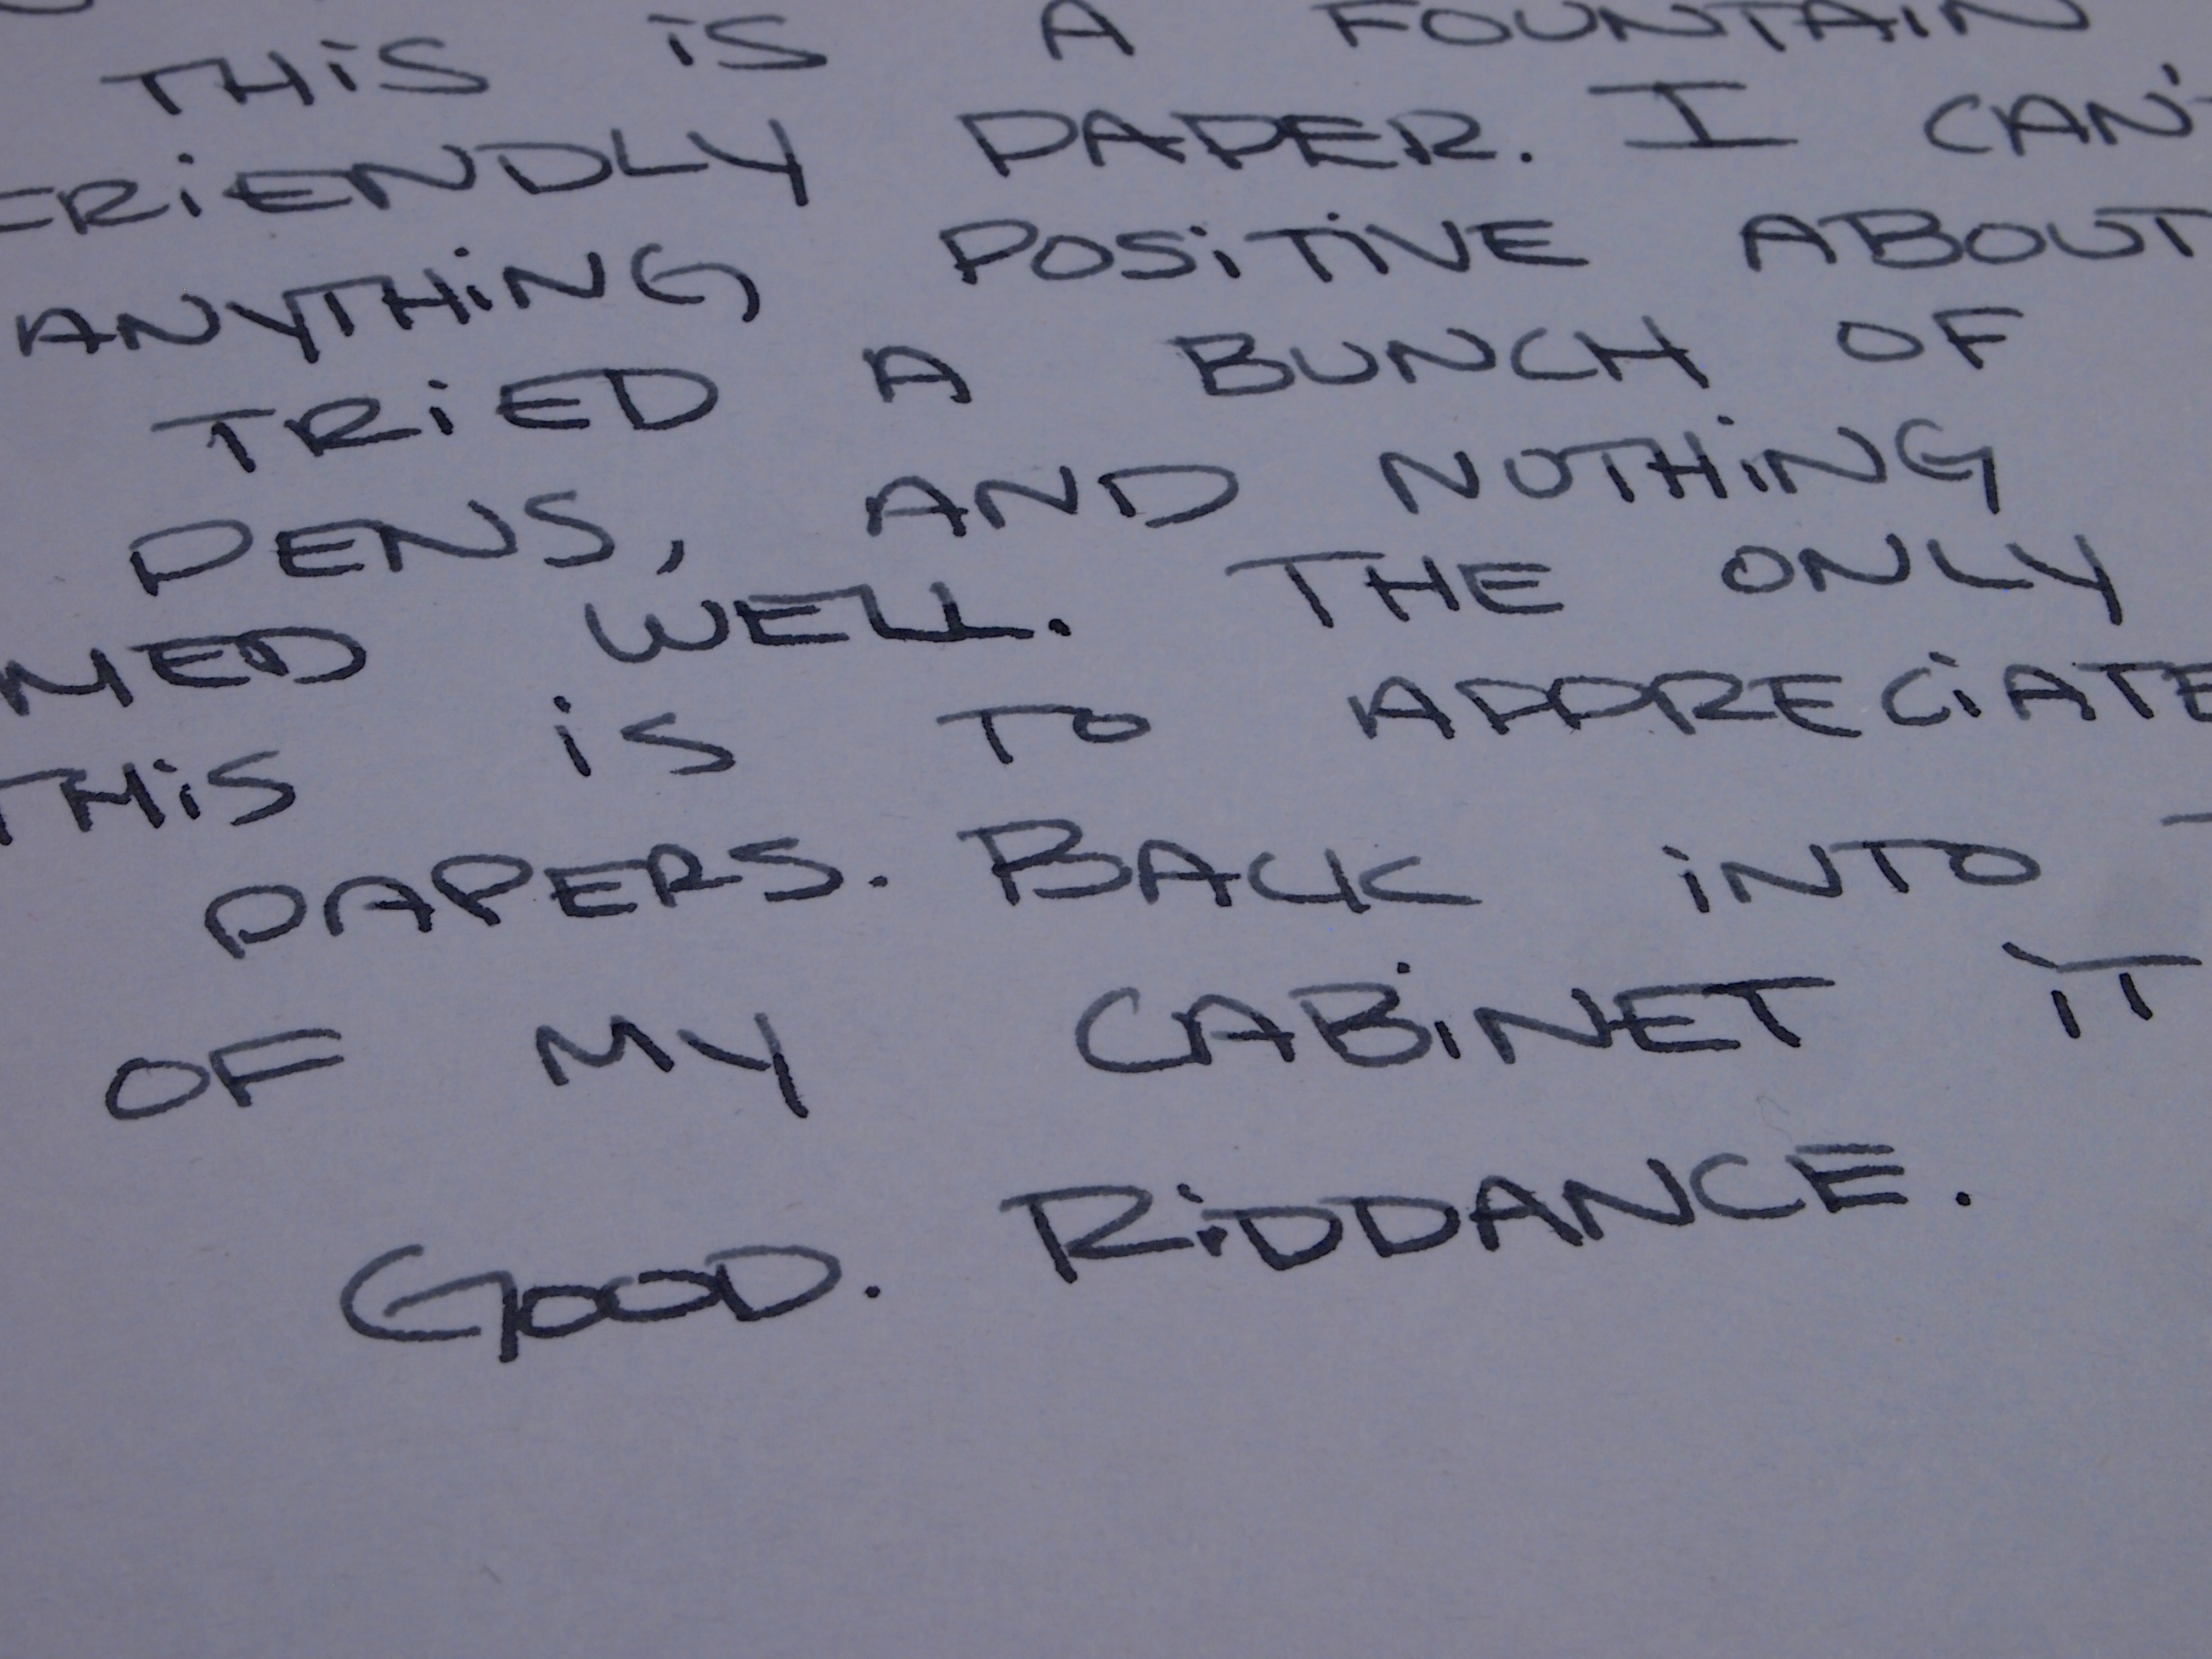 THIS IS A FOUNTAIN
FRIENDLY PAPER. I CAN'T
ANYTHING POSITIVE ABOUT
TRIED A BUNCH OF
PENS, AND NOTHING
MED WELL. THE ONLY
THIS IS TO APPRECIATE
PAPERS. BACK INTO
OF MY CABINET IT
GOOD. RIDDANCE.